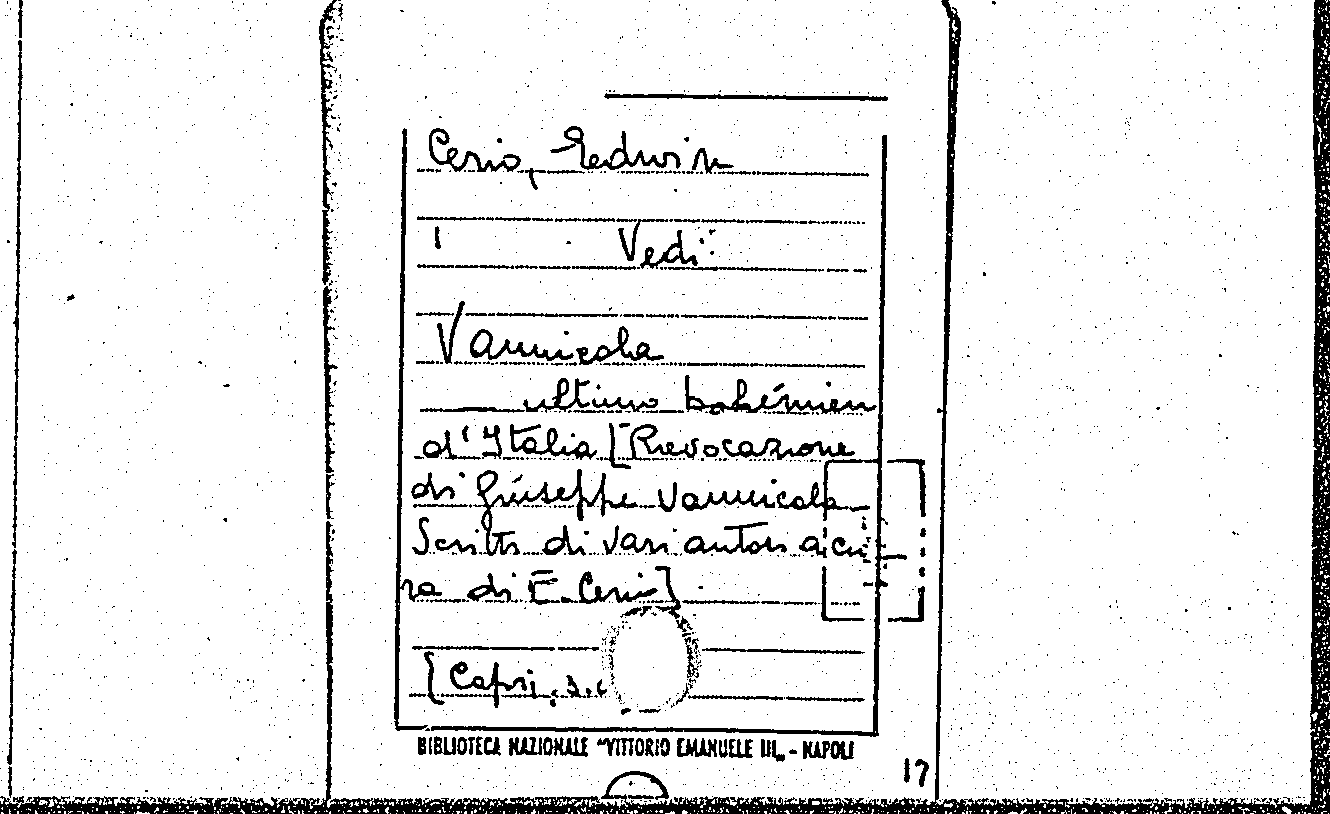 Cerio, Edwin
Vedi:
Vannicola
ultimo bohémien
d'Italia [Rievocazione
di Giuseppe Vannicola
Scritti di vari autori a cu
ra di E. Cerio]
[Capri, s.
BIBLIOTECA NAZIONALE "VITTORIO EMANUELE III„ - NAPOLI
17